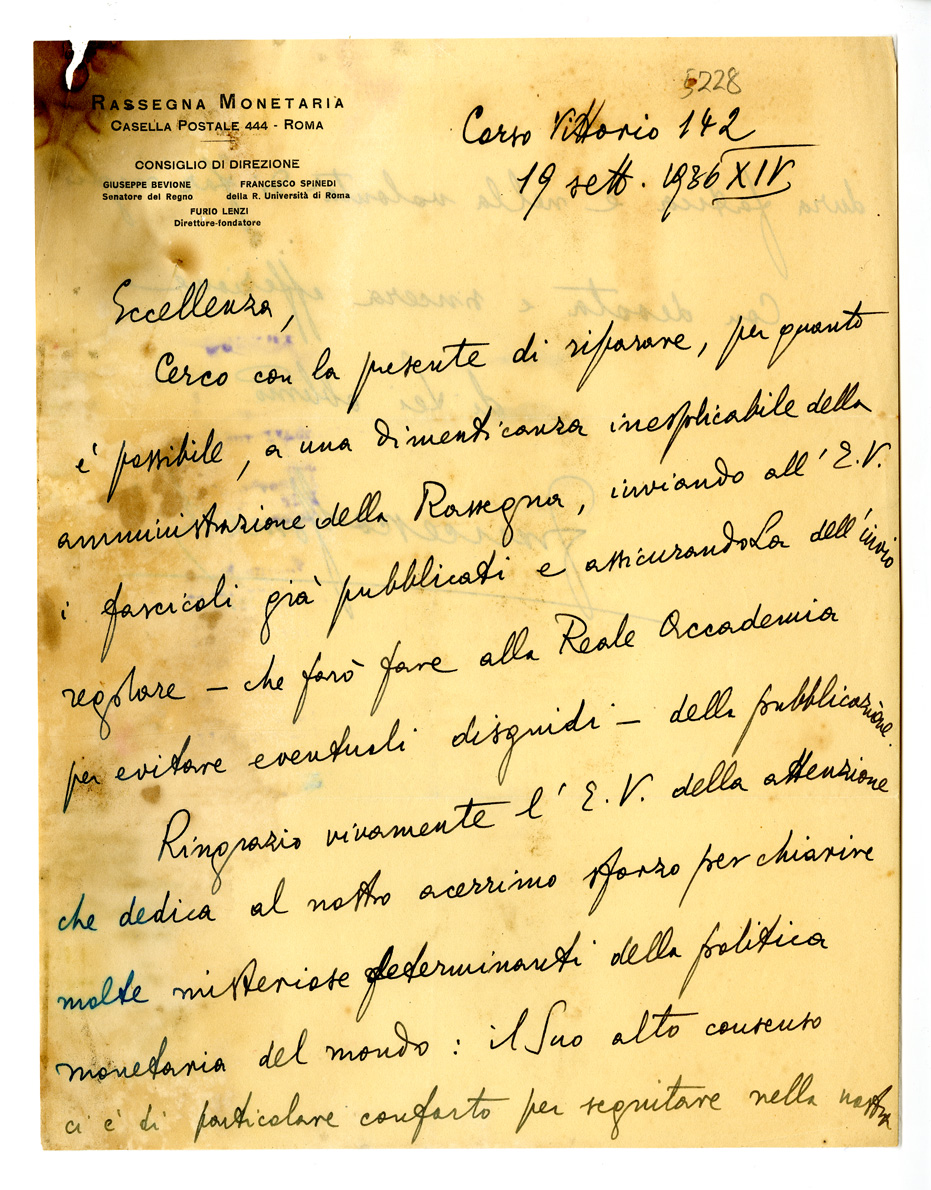 5228
RASSEGNA MONETARIA
CASELLA POSTALE 444 - ROMA
CONSIGLIO DI DIREZIONE
GIUSEPPE BEVIONE FRANCESCO SPINEDI
Senatore del Regno della R. Università di Roma
FURIO LENZI
Direttore-fondatore
Corso Vittorio 142
19 sett. 1936 XIV
Eccellenza,
Cerco con la presente di riparare, per quanto
è possibile, a una dimenticanza inesplicabile della
amministrazione della Rassegna, inviando all'E.V.
i fascicoli già pubblicati e assicurandoLa dell'invio
regolare — che farò fare alla Reale Accademia
per evitare eventuali disguidi — della pubblicazione.
Ringrazio vivamente l'E.V. della attenzione
che dedica al nostro acerrimo sforzo per chiarire
molte misteriose determinanti della politica
monetaria del mondo: il Suo alto consenso
ci è di particolare conforto per seguitare nella nostra